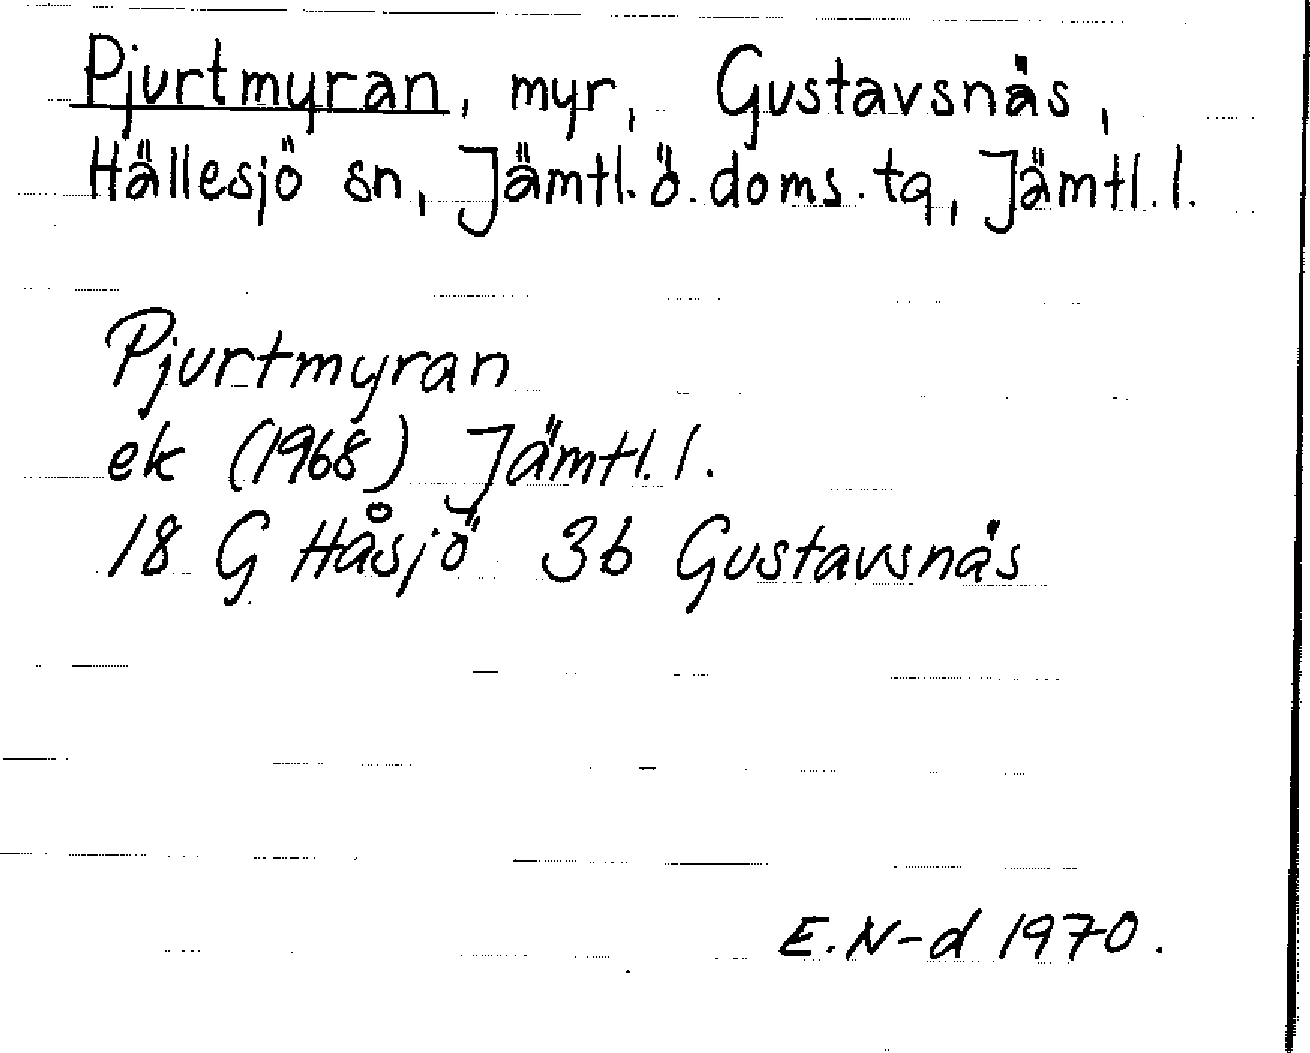 Pjurtmyran, myr, Gustavsnäs,
Hällesjö sn, Jämtl. ö. doms. tg, Jämtl. l.
Pjurtmyran
ek (1968) Jämtl. l.
18 G Håsjö 3b Gustavsnäs
E. N-d 1970.